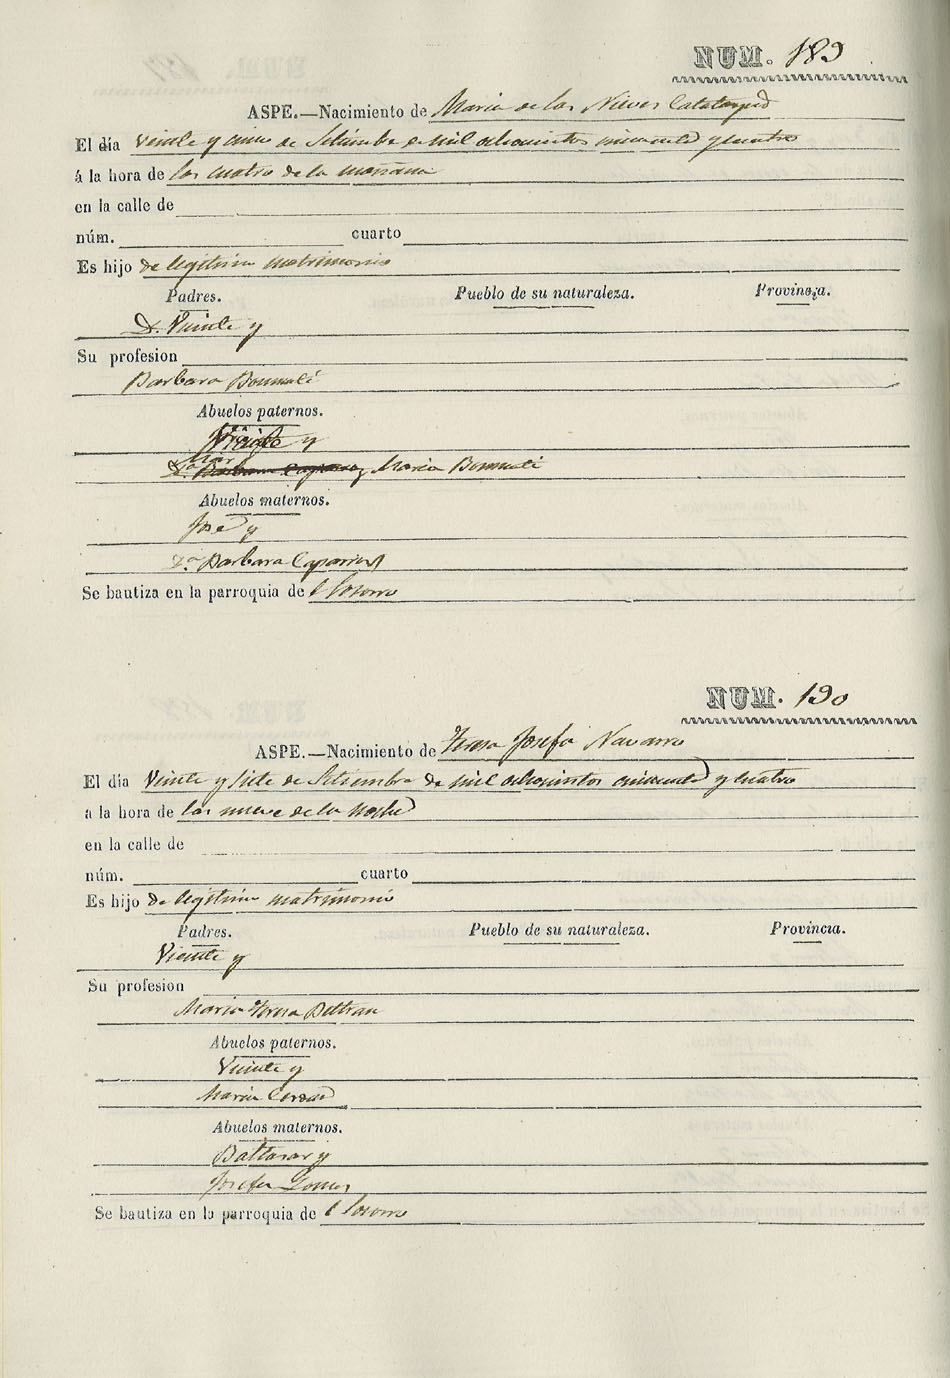 NUM. 189
ASPE.—Nacimiento de Maria de las Nieves Calatayud
El día veinte y cinco de Setiembre de mil ochocientos cincuenta y cuatro
á la hora de las cuatro de la mañana
en la calle de
núm. cuarto
Es hijo de legitimo matrimonio
Padres. Pueblo de su naturaleza. Provincia.
D. Vicente y
Su profesion
Barbara Bonmati
Abuelos paternos.
y
Maria Bonmati
Abuelos maternos.
José y
D.a Barbara Caparros
Se bautiza en la parroquia de l Socorro
NUM. 190
ASPE.—Nacimiento de Teresa Josefa Navarro
El día Veinte y siete de Setiembre de mil ochocientos cincuenta y cuatro
a la hora de las nueve de la noche
en la calle de
núm. cuarto
Es hijo de legitimo matrimonio
Padres. Pueblo de su naturaleza. Provincia.
Vicente y
Su profesion
Maria Teresa Beltran
Abuelos paternos.
Vicente y
Maria
Abuelos maternos.
Baltasar y
Josefa
Se bautiza en la parroquia de l Socorro